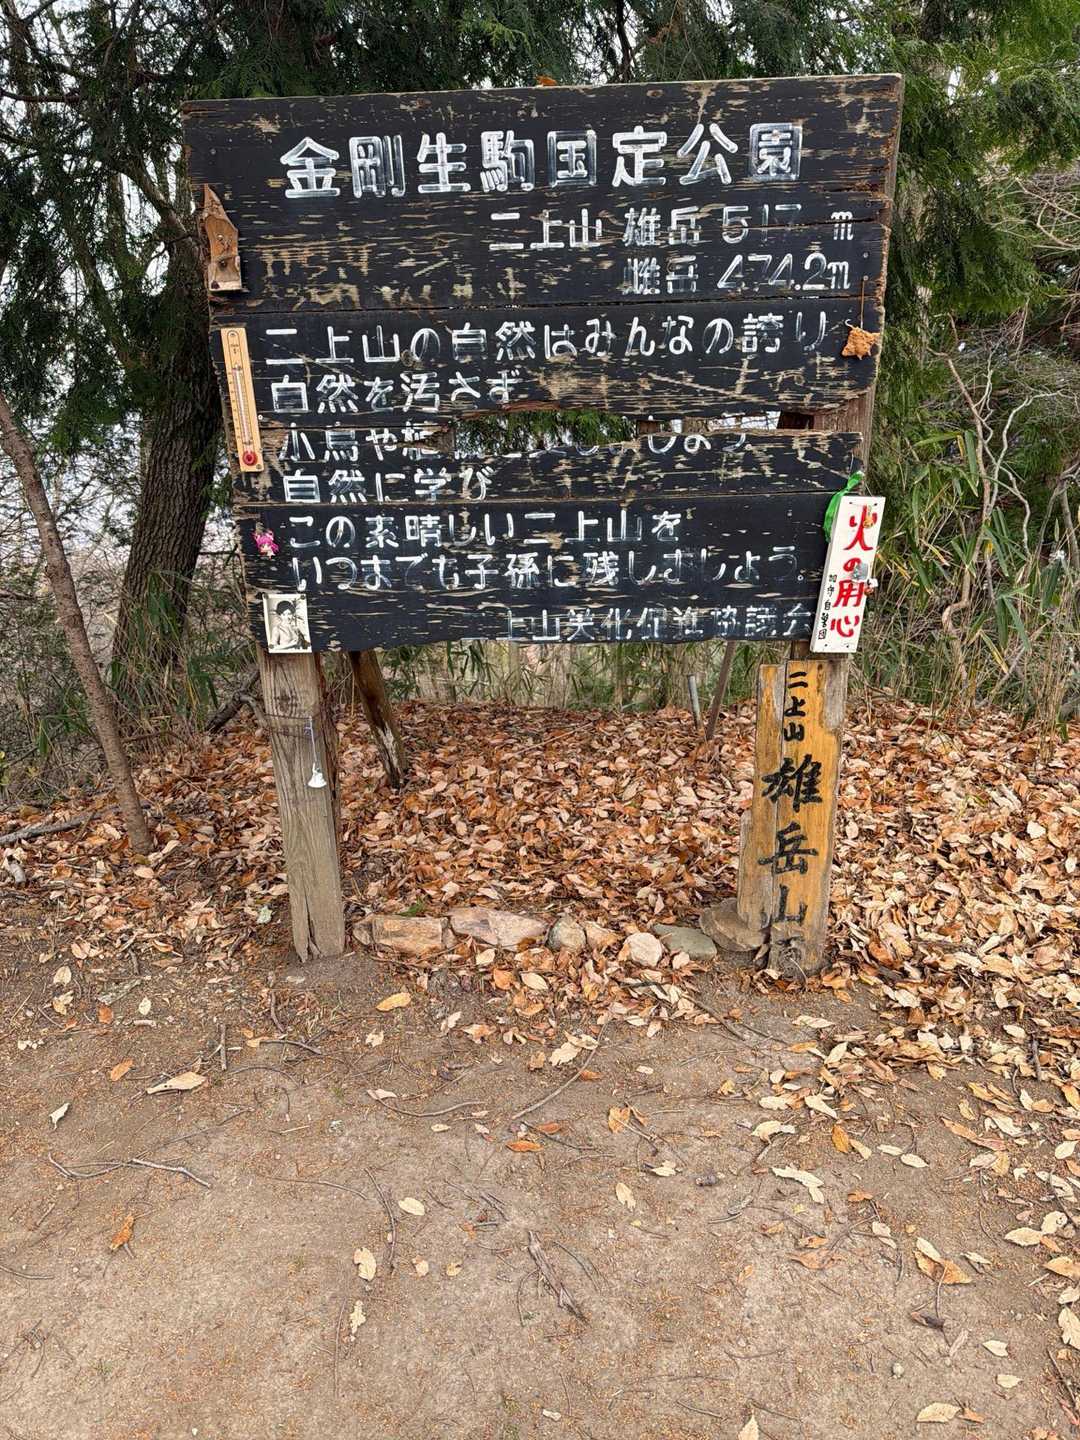 金剛生駒国定公園
二上山 雄岳 517 m
雌岳 474.2m
二上山の自然はみんなの誇り
自然を汚さず
小鳥や ましょう
自然に学び
この素晴しい二上山を
いつまでも子孫に残しましょう。
上山美化促進協議会
火の用心
加守自警団
二上山
雄岳山